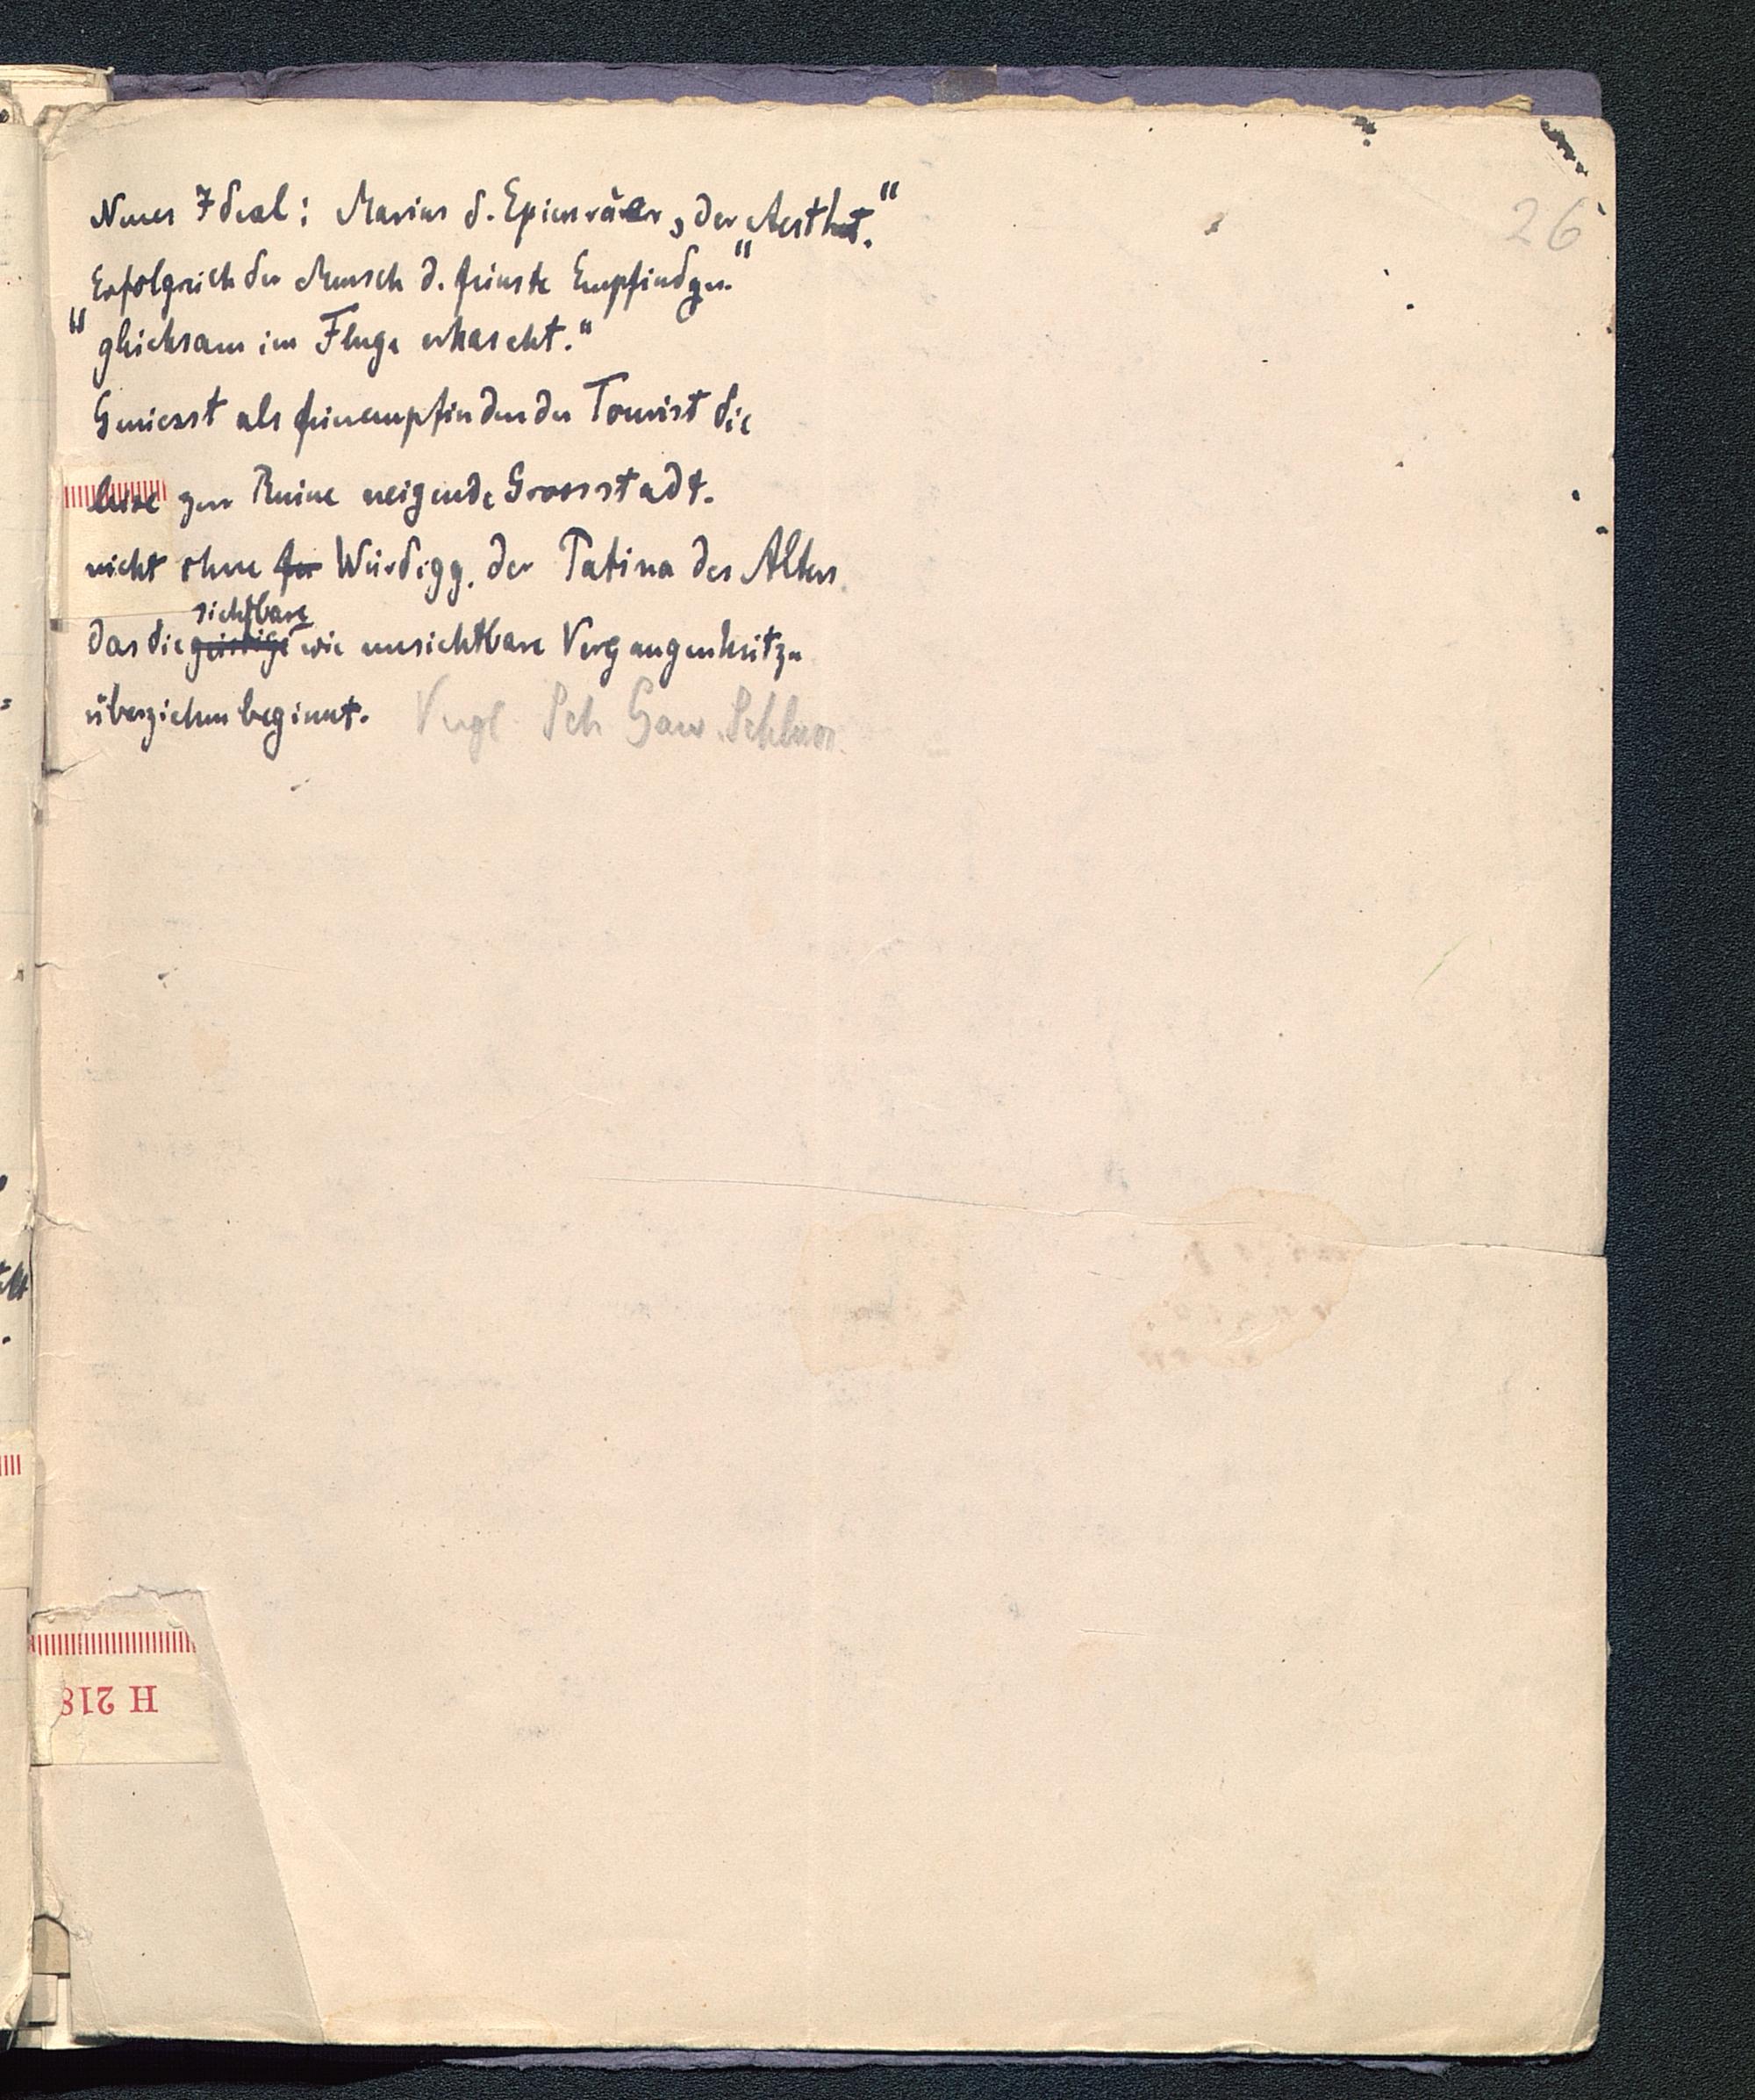 26
Neues Ideal: Marius d. Epicuräer, der Aesthet."
Erfolgreich der Mensch d. feinste Empfindgn."
"gleichsam im Fluge erhascht."
Geniesst als feinempfindender Tourist die
leise zur Ruine neigende Grossstadt.
nicht ohne Würdigg. der Patina des Alters
sichtbare
das die geistige wie unsichtbare Vergangenheit zu
überziehen beginnt. Vergl Sch
H 218